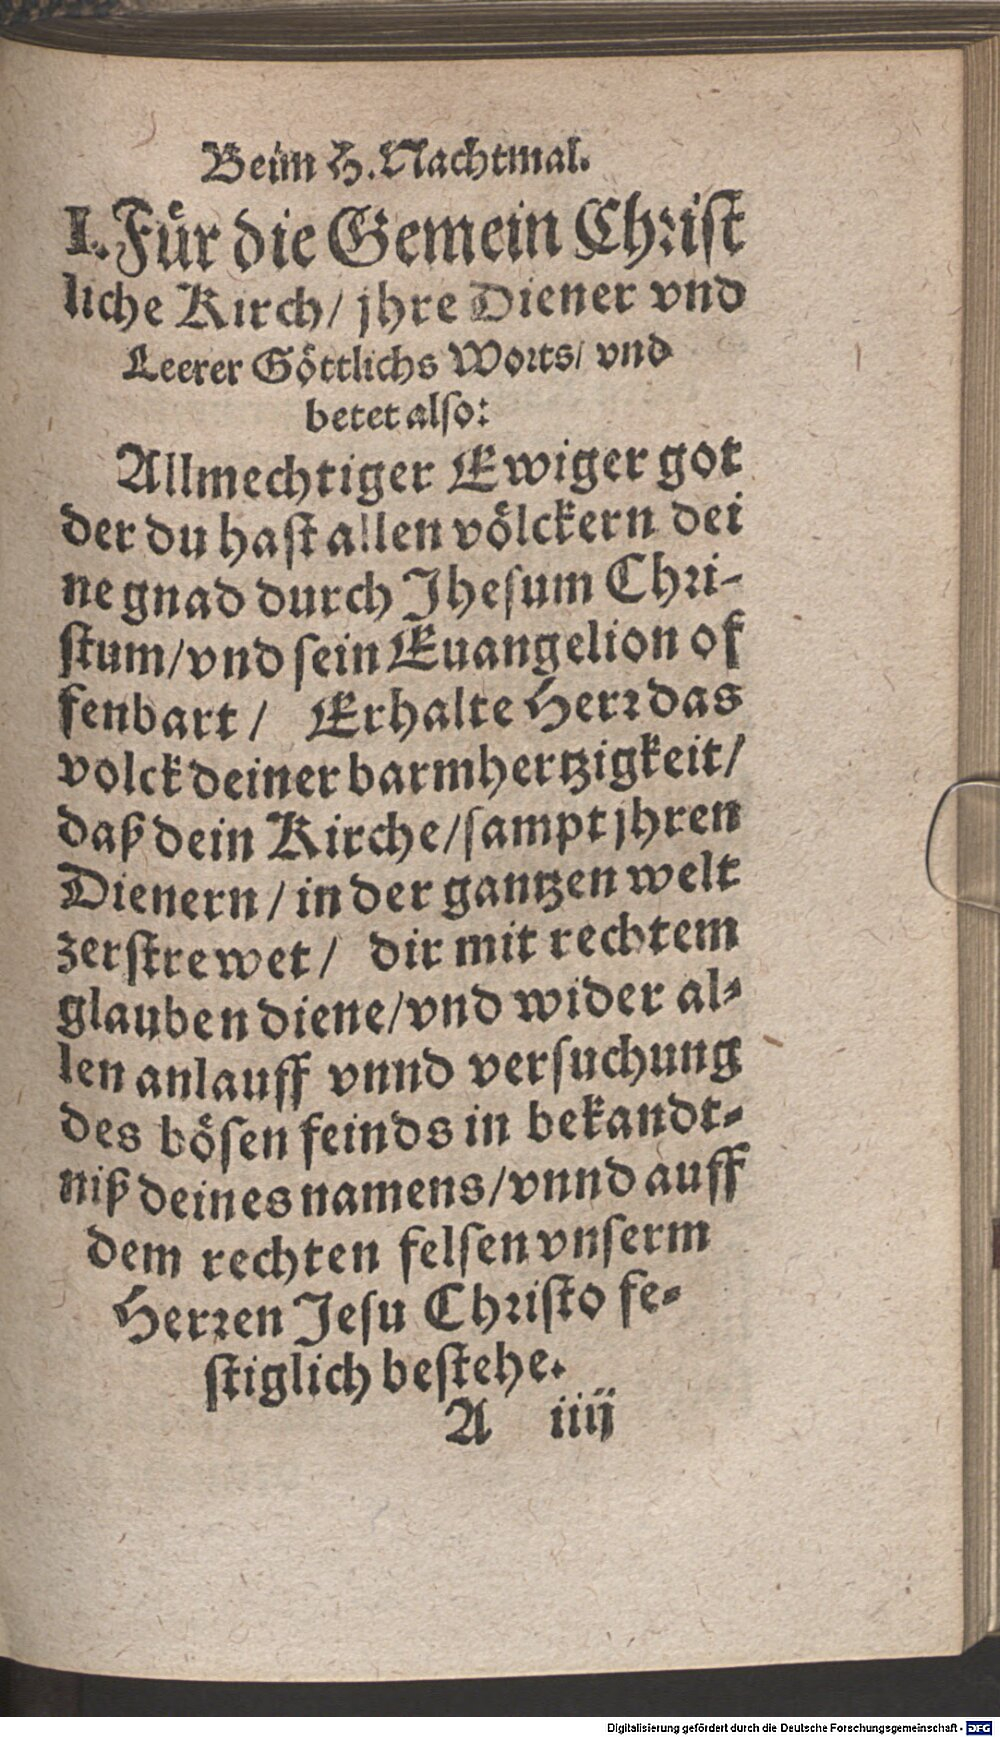 Beim H. Nachtmal.
I. Für die Gemein Christ
liche Kirch/ jhre Diener vnd
Leerer Göttlichs Worts/ vnd
betet also:
Allmechtiger Ewiger got
der du hast allen völckern dei
ne gnad durch Jhesum Chri-
stum/vnd sein Euangelion of
fenbart/ Erhalte Herr das
volck deiner barmhertzigkeit/
daß dein Kirche/sampt jhren
Dienern/in der gantzen welt
zerstrewet/ dir mit rechtem
glauben diene/vnd wider al-
len anlauff vnnd versuchung
des bösen feinds in bekandt-
niß deines namens/vnnd auff
dem rechten felsen vnserm
Herren Jesu Christo fe-
stiglich bestehe.
A iiij
Digitalisierung gefördert durch die Deutsche Forschungsgemeinschaft - DFG